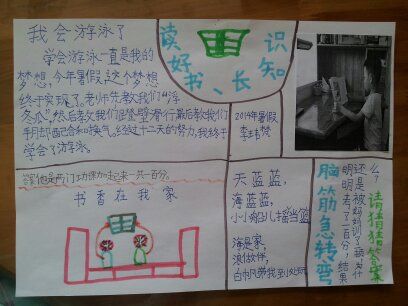 我会游泳了
学会游泳一直是我的
梦想,今年暑假,这个梦想
终于实现了。老师先教我们“浮
冬瓜”,然后教我们蹬壁滑行最后教我们
手月却配合和换气。经过十二天的努力,我终于
学会了游泳。
读好书、长知识
2014年暑假
李玤梵
答案他是两门功课加起来一共一百分。
书香在我家
天蓝蓝,
海蓝蓝,
小小船儿当摇篮
海是家,
浪做伴,
白帆带我到处玩
脑筋急转弯
明明考了一百分,结果
还是被妈妈训了一顿为什
么?
请猜猜答案